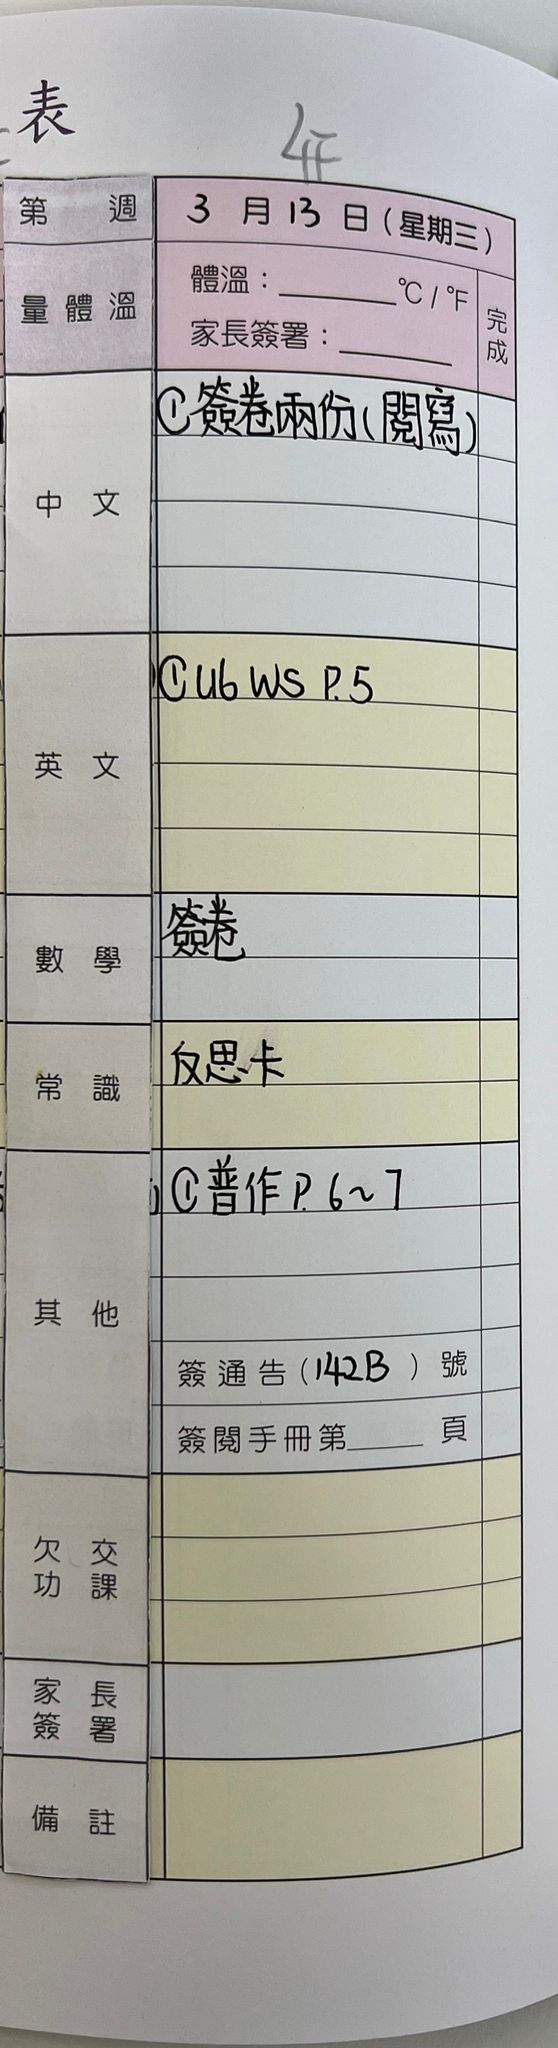 表
年
第 週
3 月 13 日 (星期三)
量體溫
體溫：______°C / °F
家長簽署：______
完成
中 文
①簽卷兩份(閱寫)
英 文
①U6 WS P.5
數 學
簽卷
常 識
反思卡
其 他
①普作 P. 6~7
簽通告 (142B) 號
簽閱手冊第____ 頁
欠 交
功 課
家 長
簽 署
備 註